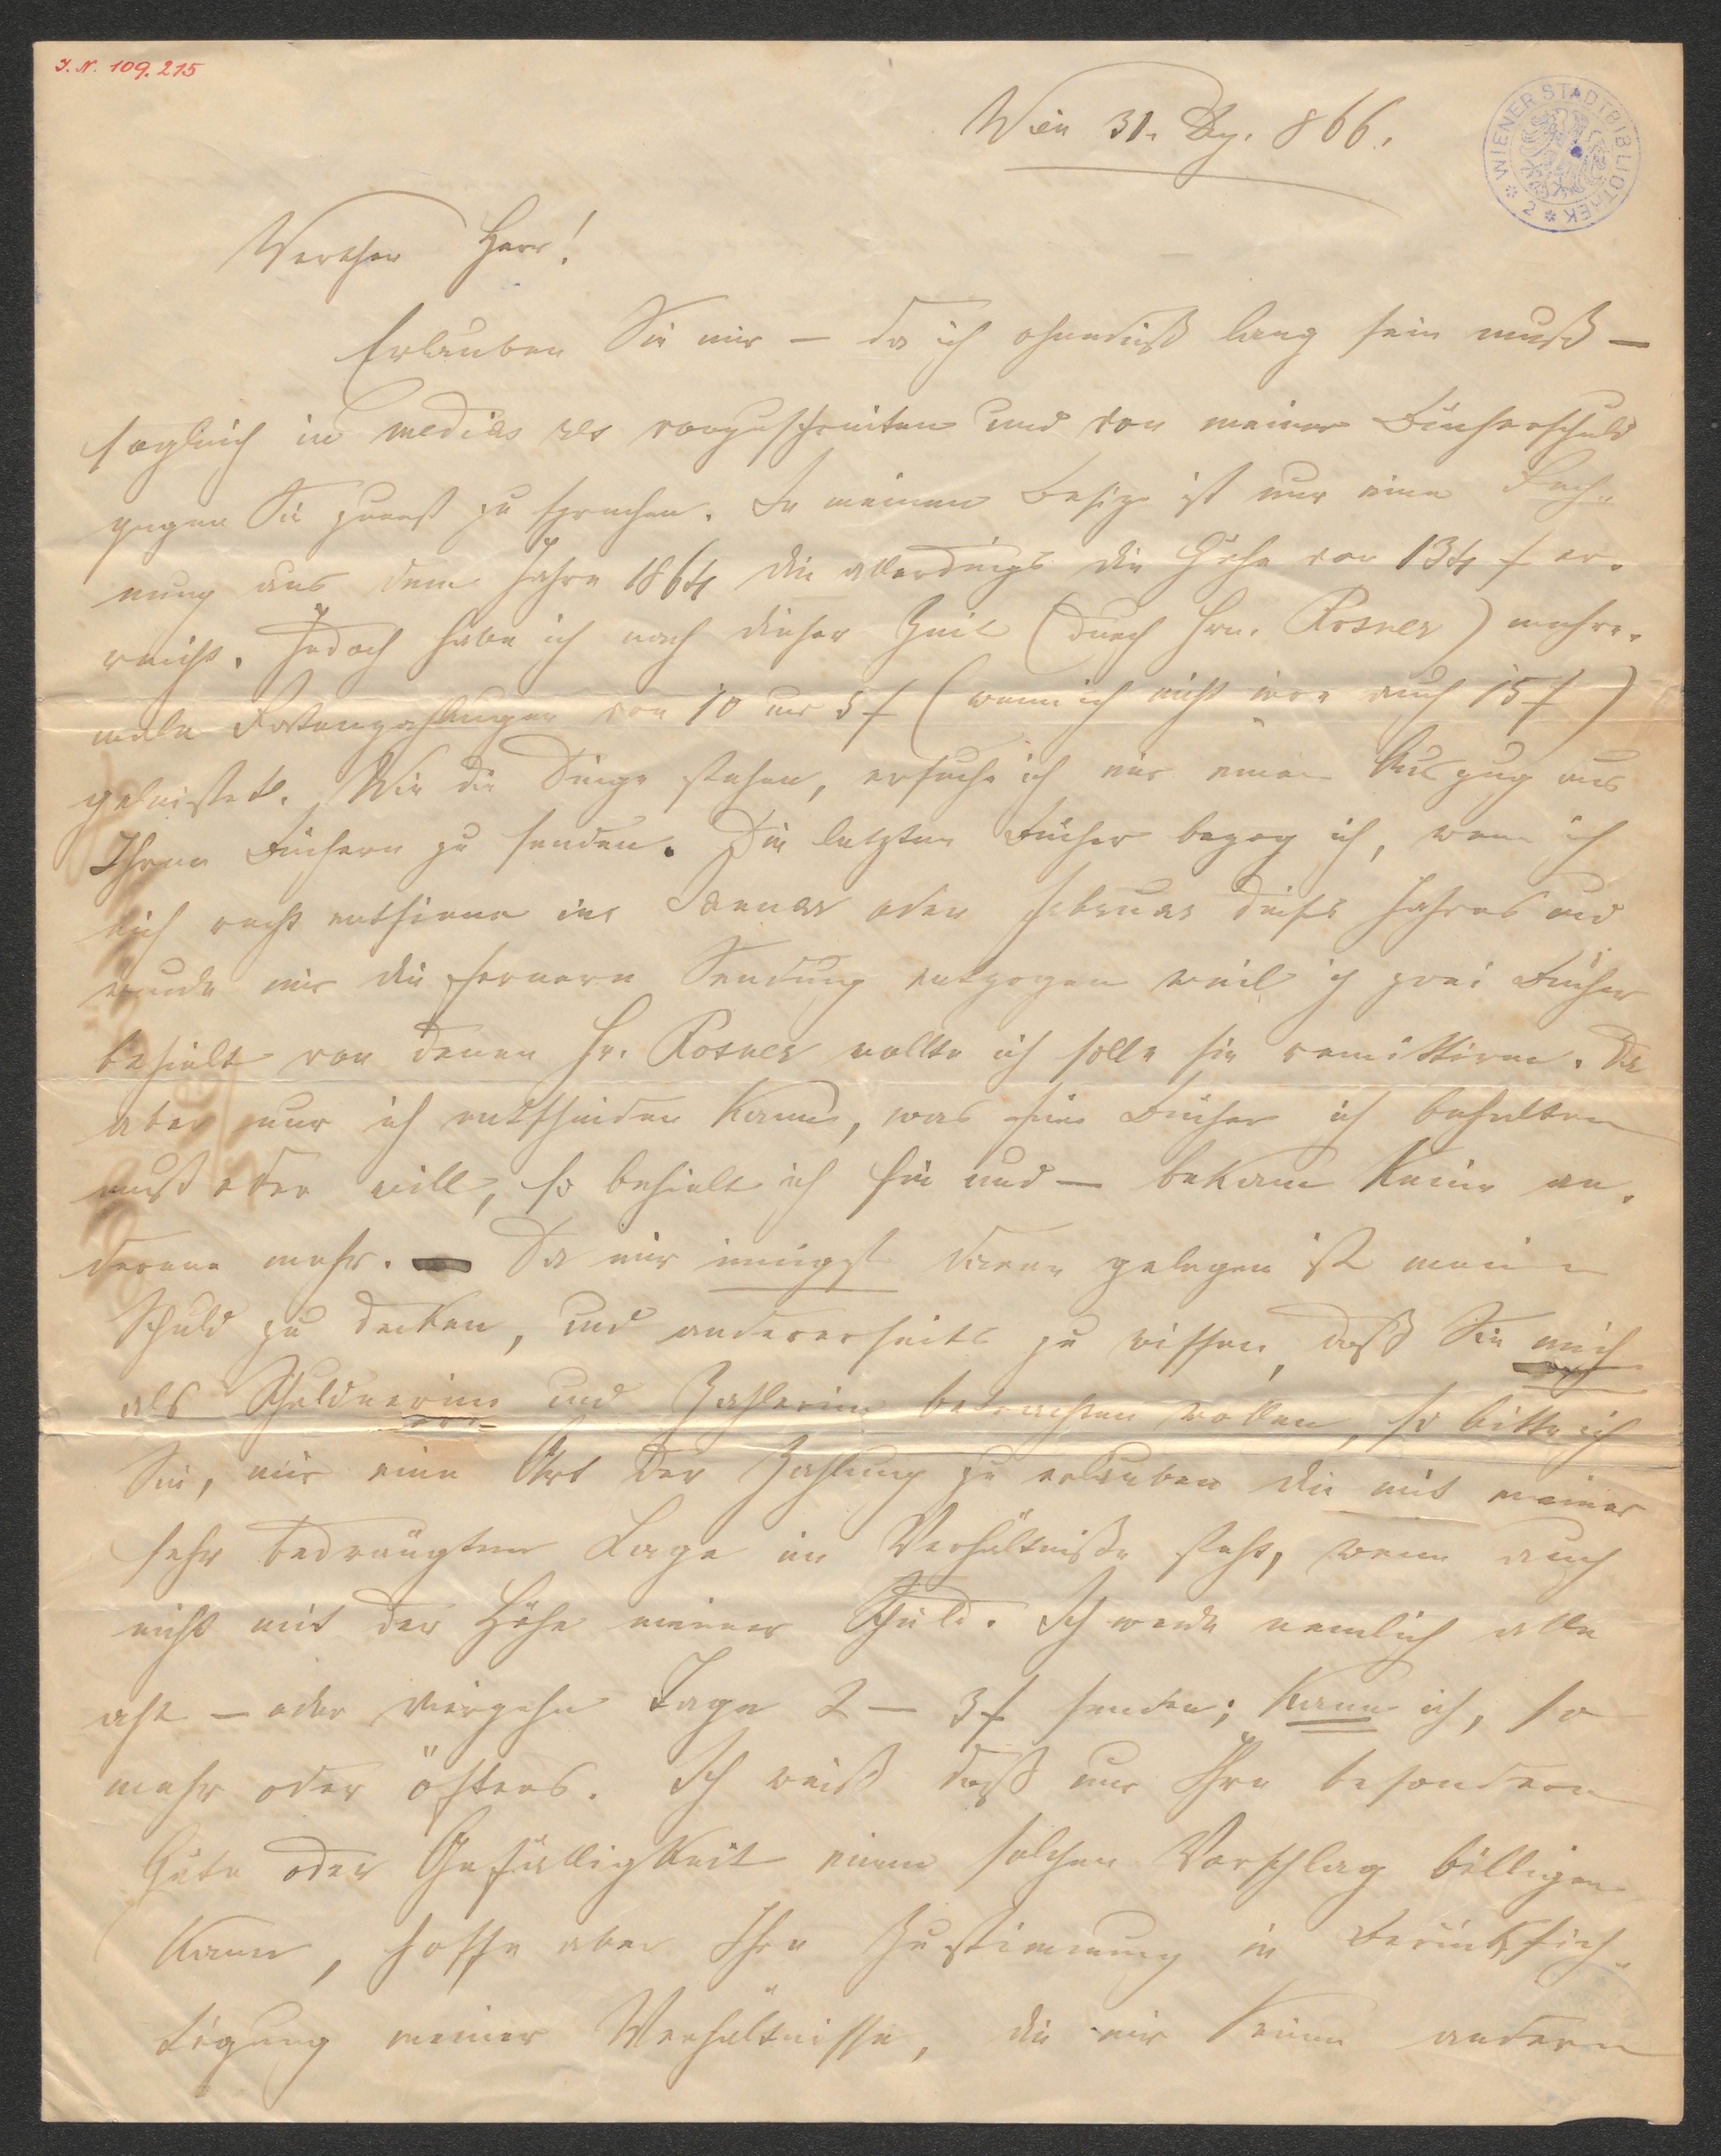 I. N. 109.215
WIENER STADTBIBLIOTHEK
Wien 31. Dez. 866.
Werther Herr!
Erlauben Sie mir – da ich ohnedieß lang sein muß –
sogleich in medias res vorzuschreiten und von meiner Bücherschuld
gegen Sie zuerst zu sprechen. In meinem Besize ist nur eine Rech-
nung aus dem Jahre 1864 die allerdings die Höhe von 134 f er-
reicht. Jedoch habe ich nach dieser Zeit (durch Hrn. Rosner) mehre-
male Ratenzahlungen von 10 und 5 f (wenn ich nicht irre auch 15 f)
geleistet. Wie die Dinge stehen, ersuche ich mir einen Auszug aus
Ihren Büchern zu senden. Die letzten Bücher bezog ich, wenn ich
mich recht entsinne im Jaenner oder Februar dieses Jahres und
wurde mir die fernere Sendung entzogen weil ich zwei Bücher
behielt von denen Hr. Rosner wollte ich solle sie remittiren. Da
aber nur ich entscheiden kann, was für Bücher ich behalten
muß oder will, so behielt ich sie und – bekam keine an-
deren mehr. – Da mir innigst daran gelegen ist meine
Schuld zu decken, und andererseits zu wissen, daß Sie mich
als Schuldnerinn und Zahlerinn betrachten wollen, so bitte ich
Sie, mir eine Art der Zahlung zu erlauben die mit meiner
sehr bedrängten Lage im Verhältniße steht, wenn auch
nicht mit der Höhe meiner Schuld. Ich werde nemlich alle
acht – oder vierzehn Tage 2 – 3 f senden; kann ich, so
mehr oder öfters. Ich weiß daß nur Ihre besondere
Güte oder Gefälligkeit einen solchen Vorschlag billigen
kann, hoffe aber Ihre Zustimmung in Berücksich-
tigung meiner Verhältnisse, die mir keinen andern